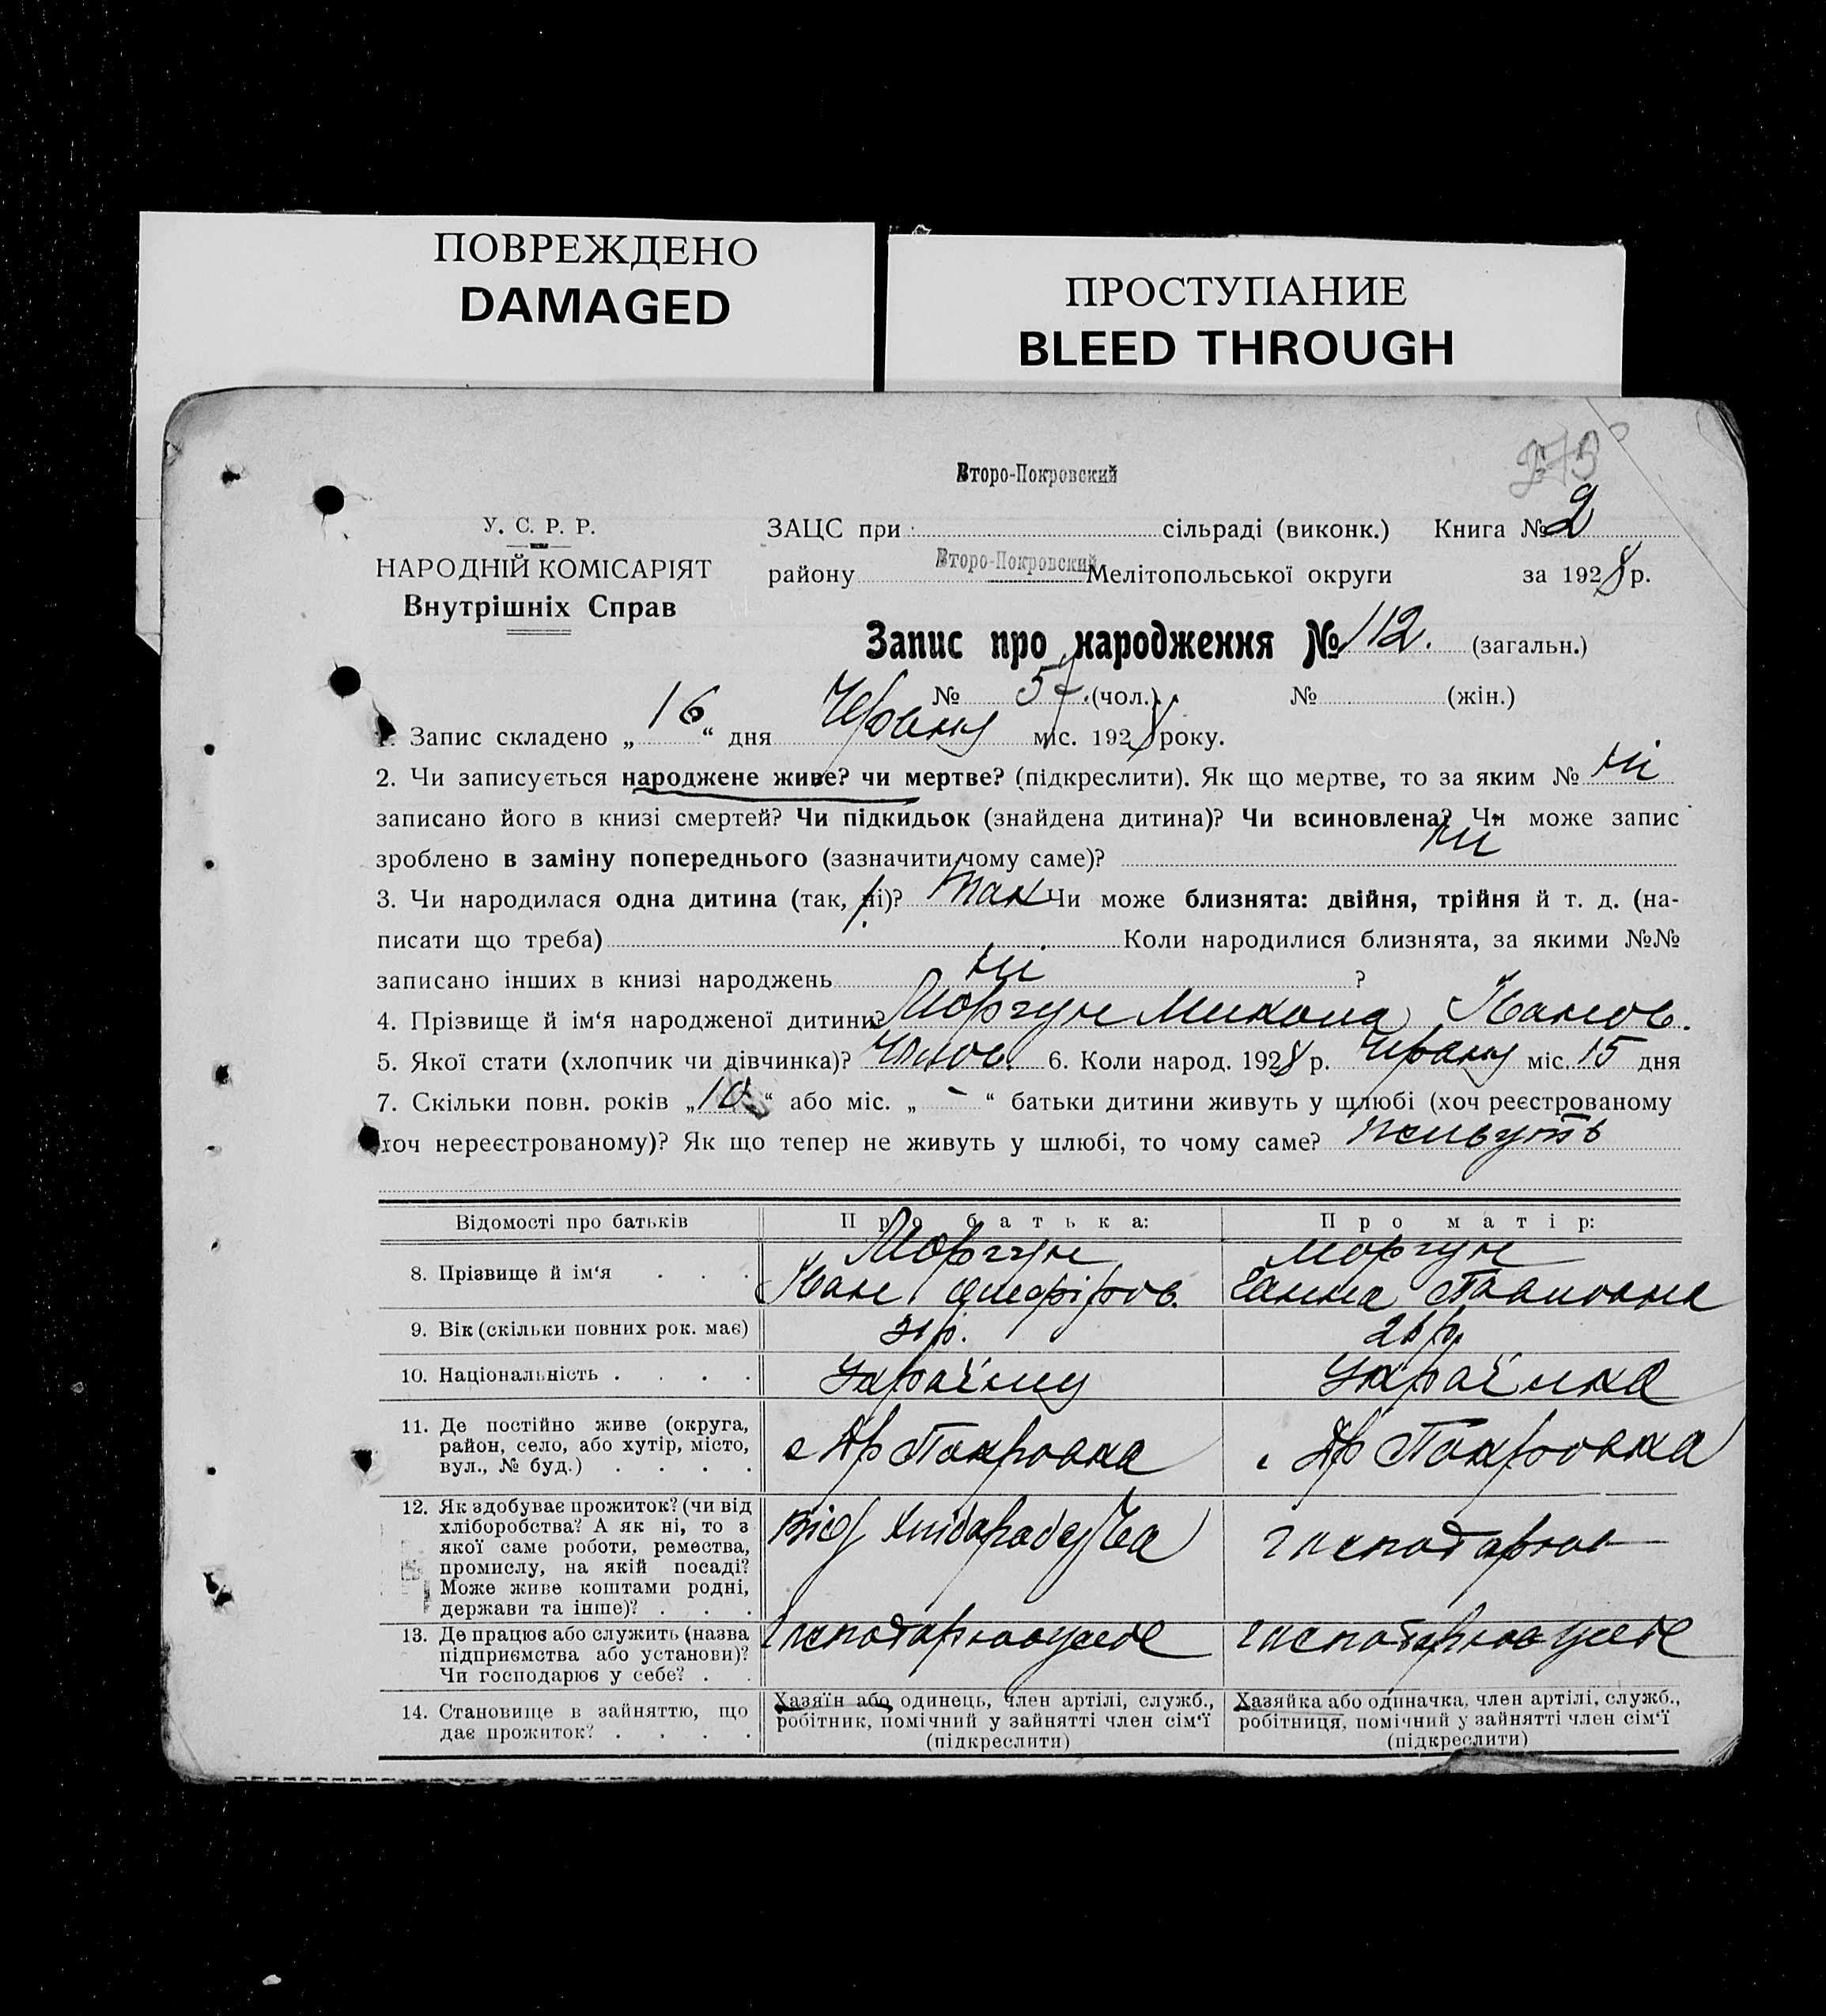 ПОВРЕЖДЕНО
DAMAGED
ПРОСТУПАНИЕ
BLEED THROUGH
Второ-Покровский
У. С. Р. Р.
НАРОДНІЙ КОМІСАРІЯТ
Внутрішніх Справ
ЗАЦС при сільраді (виконк.) Книга № 2
району Второ-Покровский Мелітопольської округи за 1928 р.
Запис про народження № 112. (загальн.)
№ 57. (чол.) № (жін.)
1. Запис складено „16“ дня Червня міс. 1928 року.
2. Чи записується народжене живе? чи мертве? (підкреслити). Як що мертве, то за яким № ні
записано його в книзі смертей? Чи підкидьок (знайдена дитина)? Чи всиновлена? Чи може запис
зроблено в заміну попереднього (зазначити чому саме)? ни
3. Чи народилася одна дитина (так, ні)? так Чи може близнята: двійня, трійня й т. д. (на-
писати що треба) Коли народилися близнята, за якими №№
записано інших в книзі народжень ни ?
4. Прізвище й ім‘я народженої дитини? Моргун Микола Іванов.
5. Якої стати (хлопчик чи дівчинка)? Чолов. 6. Коли народ. 1928 р. Червня міс. 15 дня
7. Скільки повн. років „10“ або міс. „-“ батьки дитини живуть у шлюбі (хоч реєстрованому
хоч нереєстрованому)? Як що тепер не живуть у шлюбі, то чому саме? живуть
Відомості про батьків Про батька: Про матір:
8. Прізвище й ім‘я . . . Моргун Іван Моргун Ганна Павловна
9. Вік (скільки повних рок. має) р. р.
10. Національність . . . . Українец Українка
11. Де постійно живе (округа,
район, село, або хутір, місто,
вул., № буд.) . . . . с Др Покровка с Др Покровка
12. Як здобуває прожиток? (чи від
хліборобства? А як ні, то з
якої саме роботи, ремества,
промислу, на якій посаді?
Може живе коштами родні,
держави та інше)? . . . від хлібаробства господарює
13. Де працює або служить (назва
підприємства або установи)?
Чи господарює у себе? . . Господарює у себе господарює у себе
14. Становище в зайняттю, що
дає прожиток? . . . .
Хазяїн або одинець, член артілі, служб.,
робітник, помічний у зайнятті член сім‘ї
(підкреслити)
Хазяйка або одиначка, член артілі, служб.,
робітниця, помічний у зайнятті член сім‘ї
(підкреслити)